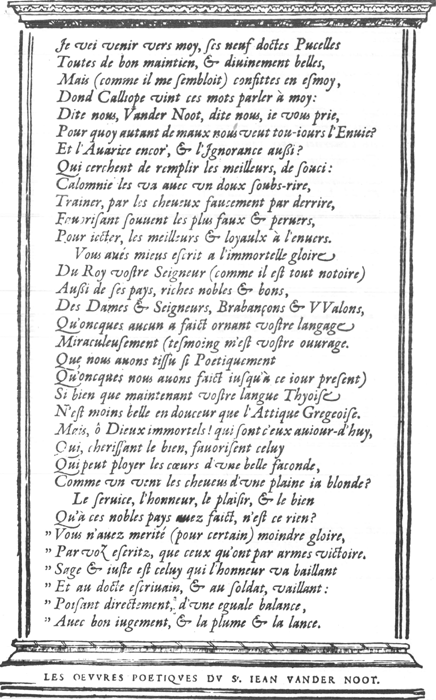 Je vei venir vers moy, ses neuf doctes Pucelles
Toutes de bon maintien, & diuinement belles,
Mais (comme il me sembloit) confittes en esmoy,
Dond Calliope vint ces mots parler à moy:
Dite nous, Vander Noot, dite nous, ie vous prie,
Pour quoy autant de maux nous veut tou-iours l'Enuie?
Et l'Auarice encor', & l'Ignorance außi?
Qui cerchent de remplir les meilleurs, de souci:
Calomnie les va auec vn doux soubs-rire,
Trainer, par les cheueux faucement par derrire,
Fauorisant souuent les plus faux & peruers,
Pour iecter, les meilleurs & loyaulx à l'enuers.
Vous aués mieus escrit a l'immortelle gloire
Du Roy vostre Seigneur (comme il est tout notoire)
Außi de ses pays, riches nobles & bons,
Des Dames & Seigneurs, Brabançons & VValons,
Qu'oncques aucun a faict ornant vostre langage
Miraculeusement (tesmoing m'est vostre ouurage.
Que nous auons tissu si Poetiquement
Qu'oncques nous auons faict iusqu'à ce iour present)
Si bien que maintenant vostre langue Thyoise
N'est moins belle en douceur que l'Attique Gregeoise.
Mais, ô Dieux immortels! qui sont ceux auiour-d'huy,
Qui, cherissant le bien, fauorisent celuy
Qui peut ployer les cœurs d'vne belle faconde,
Comme vn vent les cheueus d'vne plaine ia blonde?
Le seruice, l'honneur, le plaisir, & le bien
Qu'à ces nobles pays auez faict, n'est ce rien?
" Vous n'auez merité (pour certain) moindre gloire,
" Par voz escritz, que ceux qu'ont par armes victoire.
" Sage & iuste est celuy qui l'honneur va baillant
" Et au docte escriuain, & au soldat, vaillant:
" Poisant directement, d'vne eguale balance,
" Auec bon iugement, & la plume & la lance.
LES OEVVRES POETIQVES DV Sr. IEAN VANDER NOOT.